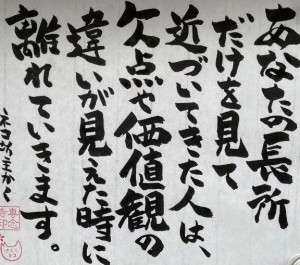 あなたの長所
だけを見て
近づいてきた人は、
欠点や価値観の
違いが見えた時に
離れていきます。
ネコ坊主かく
専念
寺印